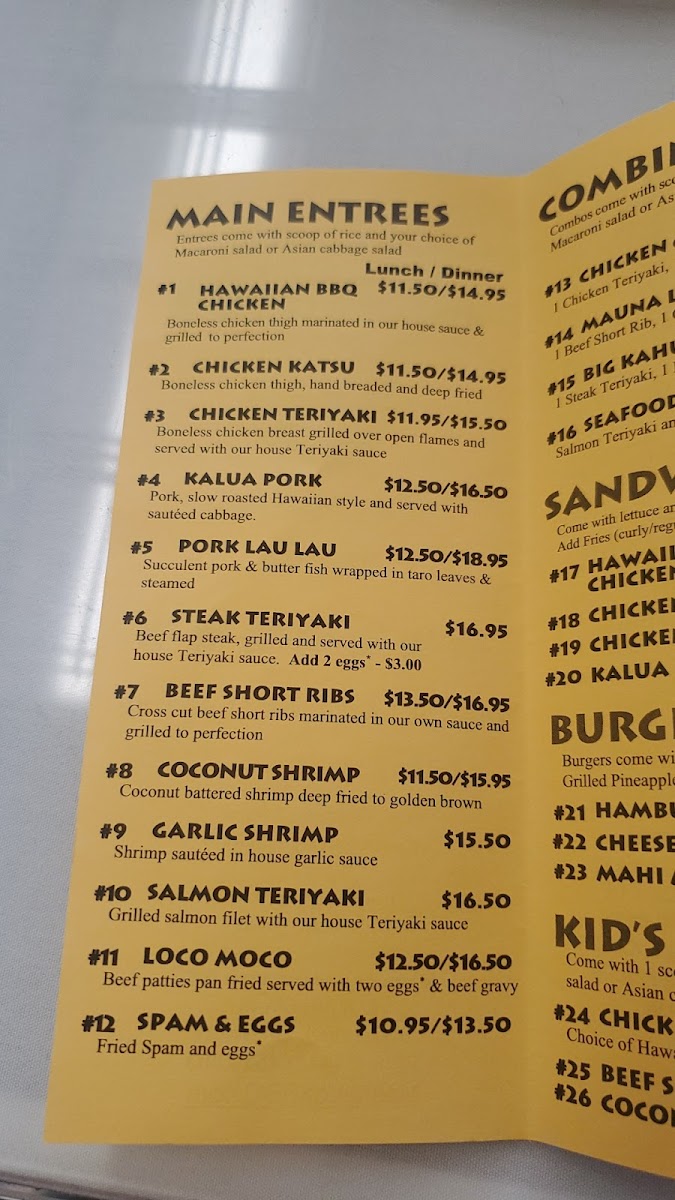 MAIN ENTREES
Entrees come with scoop of rice and your choice of
Macaroni salad or Asian cabbage salad
Lunch / Dinner
#1 HAWAIIAN BBQ CHICKEN $11.50/$14.95
Boneless chicken thigh marinated in our house sauce &
grilled to perfection
#2 CHICKEN KATSU $11.50/$14.95
Boneless chicken thigh, hand breaded and deep fried
#3 CHICKEN TERIYAKI $11.95/$15.50
Boneless chicken breast grilled over open flames and
served with our house Teriyaki sauce
#4 KALUA PORK $12.50/$16.50
Pork, slow roasted Hawaiian style and served with
sautéed cabbage.
#5 PORK LAU LAU $12.50/$18.95
Succulent pork & butter fish wrapped in taro leaves &
steamed
#6 STEAK TERIYAKI $16.95
Beef flap steak, grilled and served with our
house Teriyaki sauce. Add 2 eggs* - $3.00
#7 BEEF SHORT RIBS $13.50/$16.95
Cross cut beef short ribs marinated in our own sauce and
grilled to perfection
#8 COCONUT SHRIMP $11.50/$15.95
Coconut battered shrimp deep fried to golden brown
#9 GARLIC SHRIMP $15.50
Shrimp sautéed in house garlic sauce
#10 SALMON TERIYAKI $16.50
Grilled salmon filet with our house Teriyaki sauce
#11 LOCO MOCO $12.50/$16.50
Beef patties pan fried served with two eggs* & beef gravy
#12 SPAM & EGGS $10.95/$13.50
Fried Spam and eggs*
Combos come with
Macaroni salad or
#13 CHICKEN
1 Chicken Teriyaki,
#14 MAUNA
1 Beef Short Rib, 1
#15 BIG
1 Steak Teriyaki, 1
#16 SEAFOOD
Salmon Teriyaki
Come with lettuce
Add Fries
#17
#18
#19
#20 KALUA
Burgers come
Grilled
#21
#22
#23 MAHI
KID'S
Come with 1
salad or Asian
#24
Choice of
#25 BEEF
#26